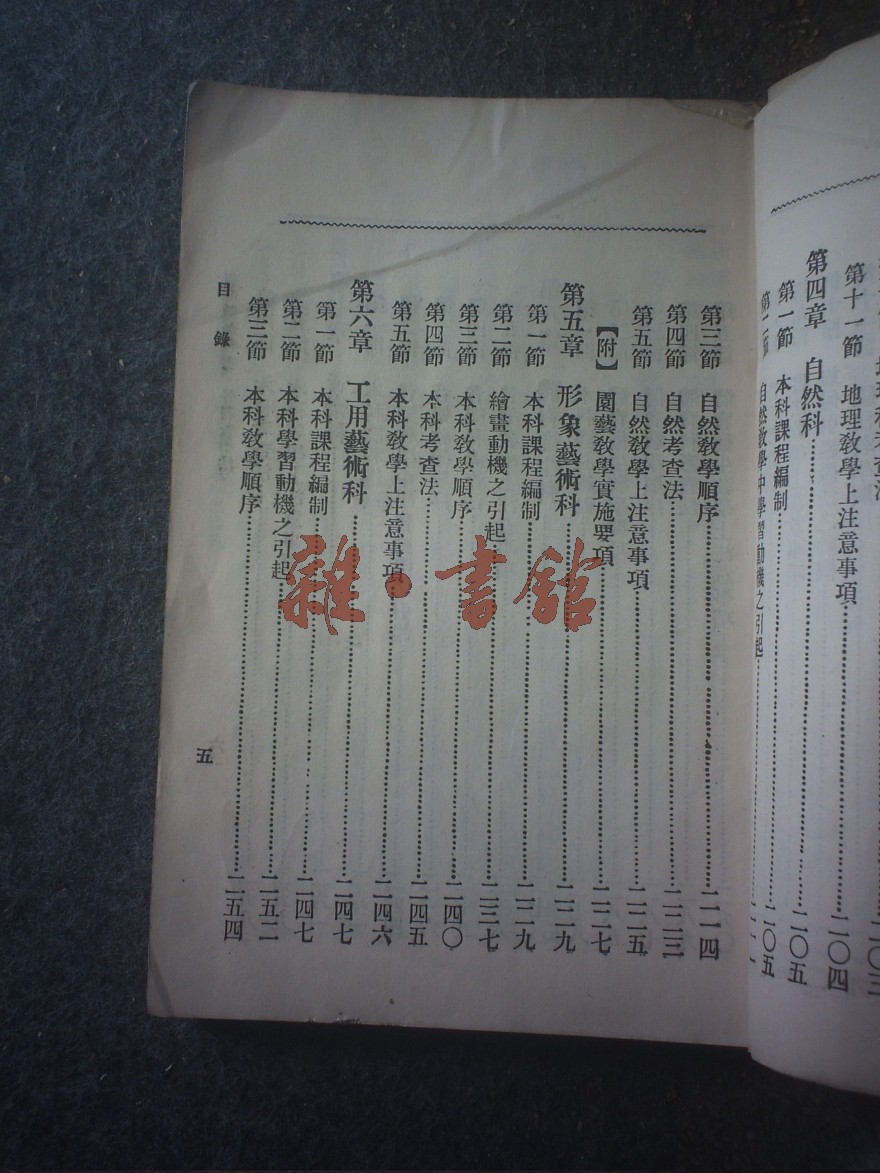 地理科考查法……二〇三
第十一節 地理教學上注意事項……二〇四
第四章 自然科……二〇五
第一節 本科課程編制……二〇五
第二節 自然教學中學習動機之引起……
第三節 自然教學順序……二一四
第四節 自然考查法……二二三
第五節 自然教學上注意事項……二二五
【附】 園藝教學實施要項……二二七
第五章 形象藝術科……二二九
第一節 本科課程編制……二二九
第二節 繪畫動機之引起……二三七
第三節 本科教學順序……二四〇
第四節 本科考查法……二四五
第五節 本科教學上注意事項……二四六
第六章 工用藝術科……二四七
第一節 本科課程編制……二四七
第二節 本科學習動機之引起……二五二
第三節 本科教學順序……二五四
目錄
五
雜·書館